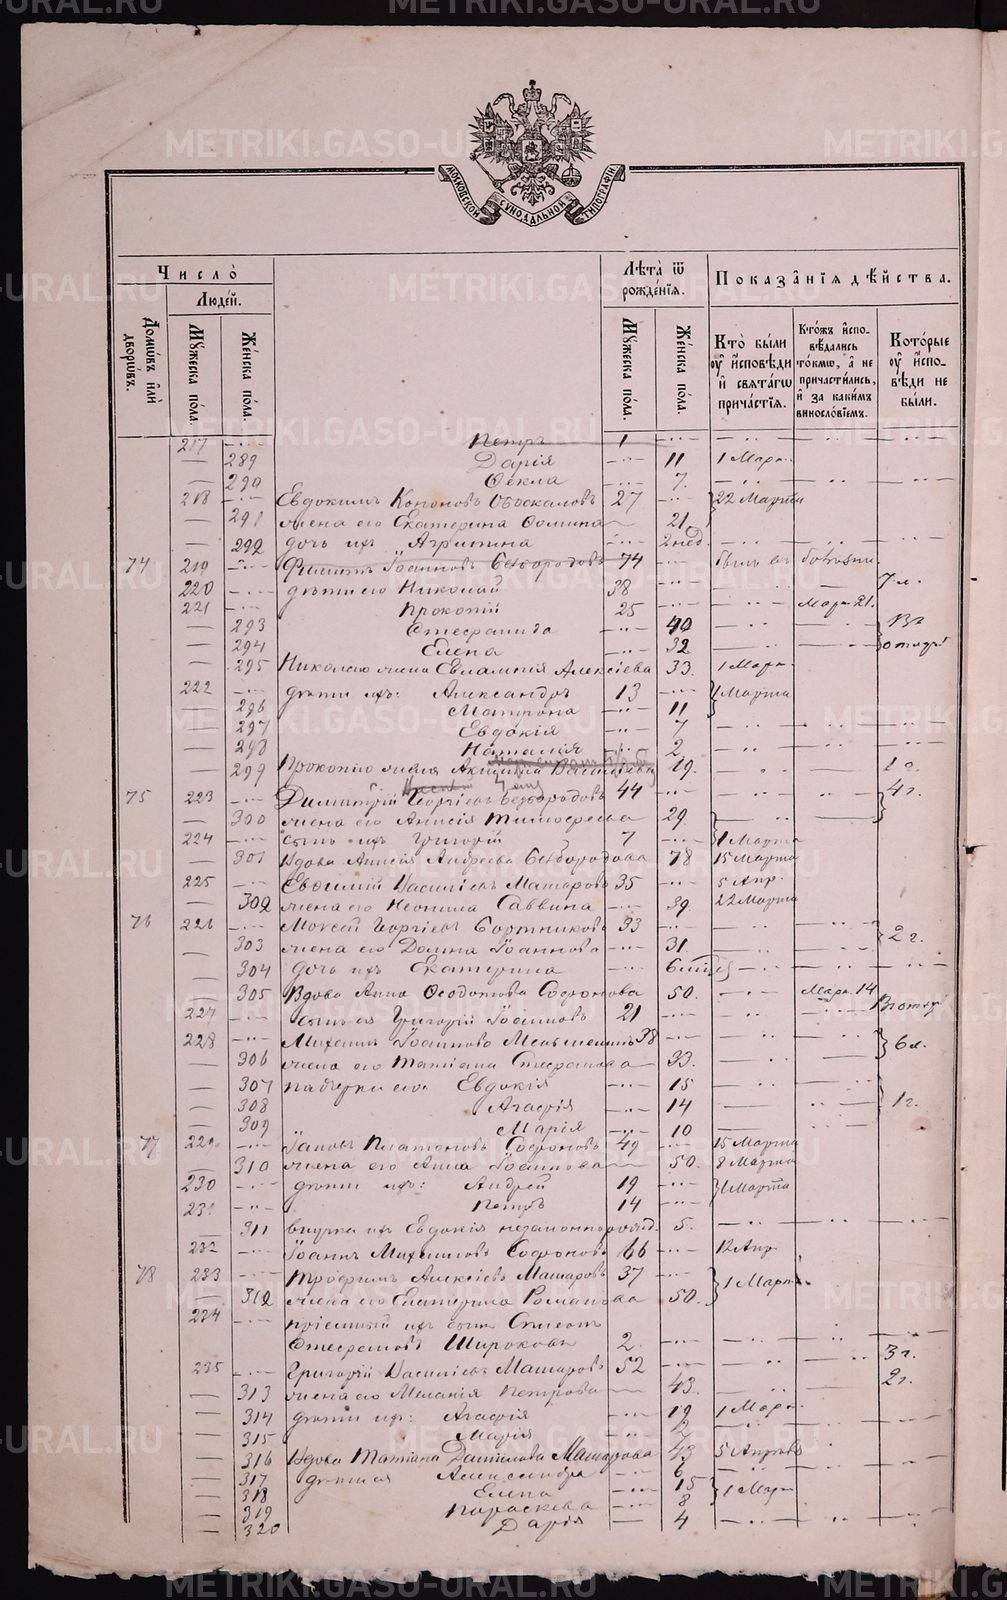 METRIKI.GASO-URAL.RU
МОСКОВСКОЙ СѴНОДАЛЬНОЙ ТИПОГРАФІИ
Число̀
Людей.
Домѡвъ или дворѡвъ.
Мꙋжеска пола.
Женска пола.
Лѣта ѿ рожденїя.
Мꙋжеска пола.
Женска пола.
Показанїя дѣйства.
Кто были оу исповѣди и свѧтагѡ причастїя.
Ктожъ исповѣдались токмѡ, а не причастились, и за какимъ винословїемъ.
Которые оу исповѣди не были.
217 Петръ 1
289 Дарія 11 1 Мар.
290 Ѳекла 7
218 Евдокимъ 27 22 Марта
291 жена его Екатерина Ѳомина 21
292 дочь ихъ 2 нед.
74 219 Іоанновъ 74
220 дѣти его Николай 38
221 Прокопій 25 Мар. 21.
293 Стефанида 40
294 Елена 32
295 Николаю жена Евлампія Алексіева 33. 1 Мар.
222 дѣти ихъ: Александръ 13 1 Марта
296 Матрона 11
297 Евдокія 7
298 Наталія 2
299 Прокопію жена 19. 1 г.
75 223 Димитрій Георгіевъ 44 4 г.
300 жена его Анисія Тимофеева 29
224 сынъ ихъ Григорій 7 1 Марта
301 Вдова Анисія Андреева 78 15 Марта
225 Евѳимій Василіевъ Машаровъ 35 5 Апр.
302 жена его Неонила Саввина 39. 22 Марта
76 226 Моисей Георгіевъ Бортниковъ 33 2 г.
303 жена его Домна Іоаннова 31.
304 дочь ихъ Екатерина
305 Вдова Анна Ѳеодотова Софонова 50. Мар. 14
227 сынъ ея Григорій Іоанновъ 21
228 Михаилъ 38 6 л.
306 жена его Татіана Стефанова 33.
307 падчерки его: Евдокія 15
308 Агафія 14 1 г.
309 Марія 10
77 229 Платоновъ Софоновъ 49 15 Марта
310 жена его Анна Іоаннова 50. 8 Марта
230 дѣти ихъ: Андрей 19 1 Марта
231 Петръ 14
311 внучка ихъ Евдокія незаконнорожд. 5.
232 Іоаннъ Михаиловъ Софоновъ 66 12 Апр.
78 233 Трофимъ Алексіевъ Машаровъ 37 1 Март.
312 жена его Екатерина Романова 50.
234 пріемный ихъ сынъ
Стефановъ Широковъ 2. 3 г.
235 Григорій Василіевъ Машаровъ 52 2 г.
313 жена его Меланія Петрова 43.
314 дѣти ихъ: Агафія 19 1 Мар.
315 Марія 2
316 Вдова Татіана Даниілова Машарова 43 5 Апрѣля
317 дѣти ея Александра 6
318 Елена 15 1 Мар
319 Параскева 8
320 Дарія 4